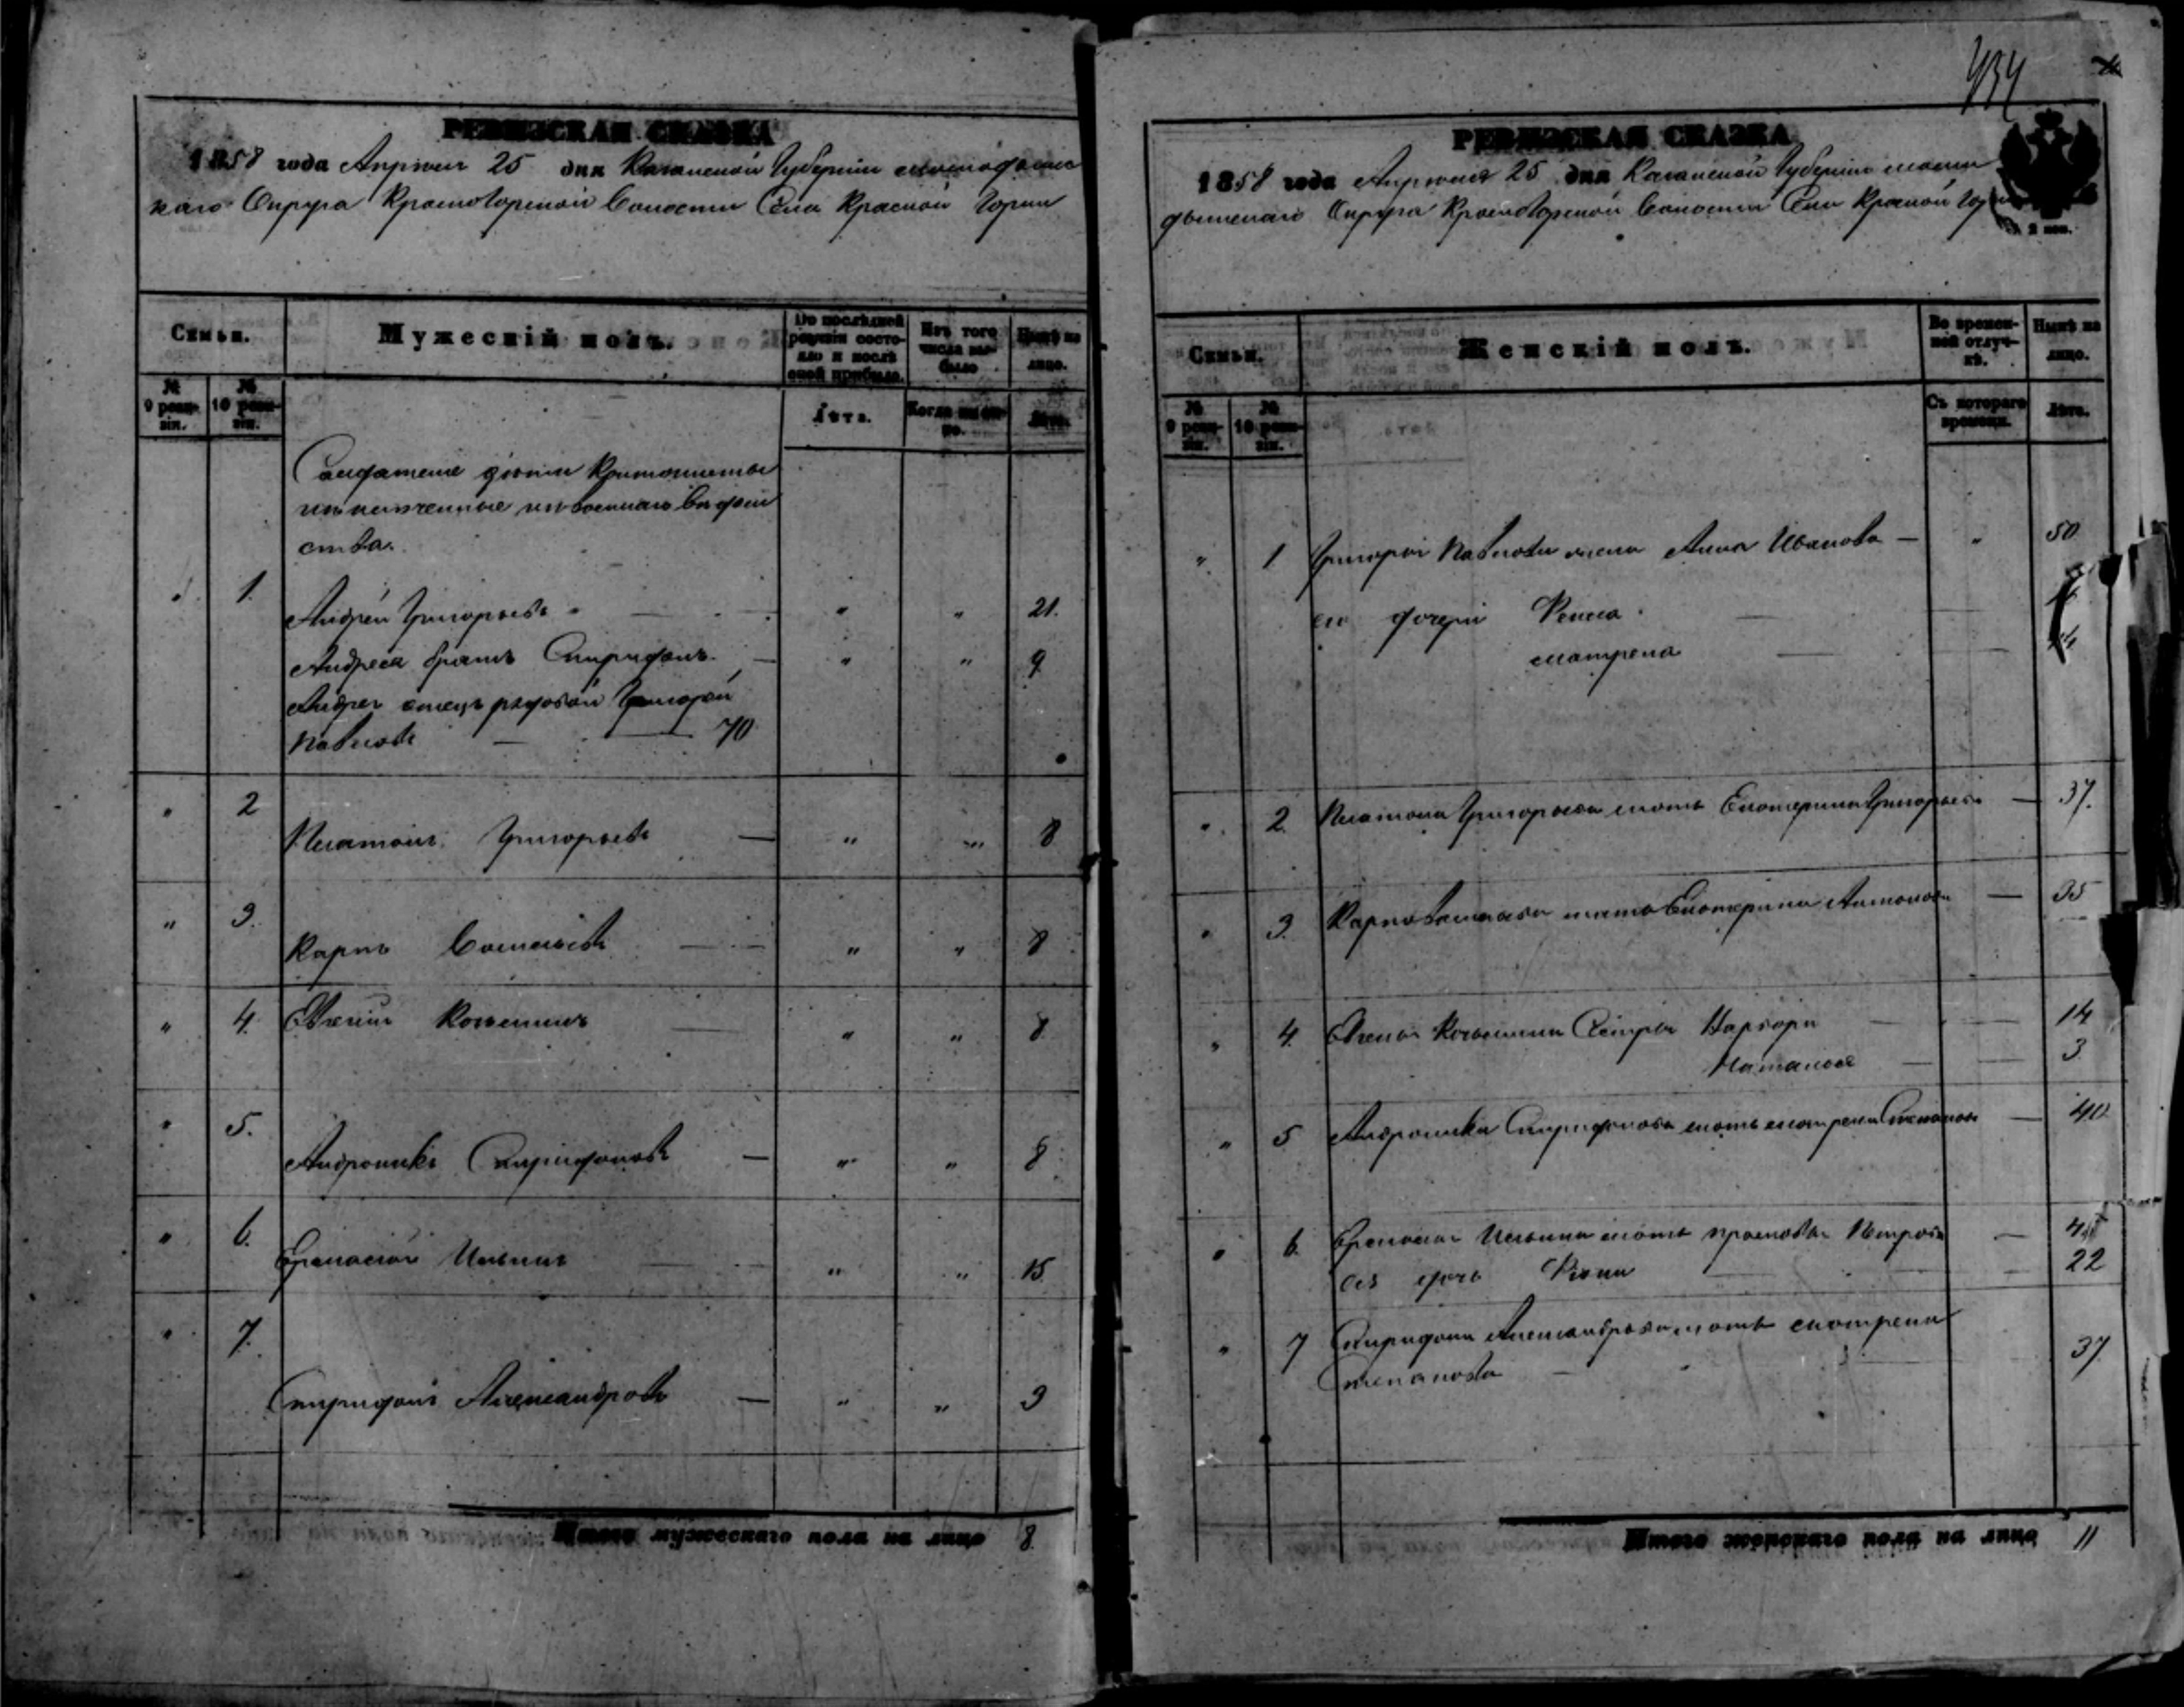 РЕВИЗСКАЯ СКАЗКА
1858 года Апреля 25 дня Казанской Губернии
каго Округа Красногорской Волости Села Красной Горки
Семьи.
Мужескій полъ.
До послѣдней ревизіи состояло и послѣ оной прибыло.
Изъ того числа выбыло
Нынѣ на лицо.
№ 9 ревизіи.
№ 10 ревизіи.
Лѣта.
Когда именно.
Лѣта.
Солдатские дѣти Кантонисты
исключенные изъ военнаго вѣдом
ства.
1. Андрей Григорьевъ " " 21.
Андрея братъ Спиридонъ — " " 9
Андрея отецъ рядовой Григорій
Павловъ — 70
" 2 Платонъ Григорьевъ — " " 8
" 3. Карпъ Васильевъ — " " 8
" 4. Козьминъ — " " 8
" 5. Андроникъ Спиридоновъ — " " 8
" 6. Ильинъ " " 15
" 7. Спиридонъ Александровъ — " " 9
Итого мужескаго пола на лицо 8.
434
РЕВИЗСКАЯ СКАЗКА
1858 года Апреля 25 дня Казанской Губернии мама
дышскаго Округа Красногорской Волости Села Красной Горки
2 коп.
Семьи.
Женскій полъ.
Во временной отлучкѣ.
Нынѣ на лицо.
№ 9 ревизіи.
№ 10 ревизіи.
Съ котораго времени.
Лѣта.
" 1 Григорья Павлова жена Анна Иванова — " 50
его дочери
матрена —
" 2. Платона Григорьева мать Екатерина Григорьева — 37.
" 3. Карпа Васильева мать Екатерина Антонова — 35
" 4. Козьмина Сестры Варвара — 14
Наталья — 3
" 5 Андроника Спиридонова мать матрена Степанова — 40
" 6. Ильина мать прасковья Петрова —
ея дочь — 22
" 7 Спиридона Александрова мать матрена
Степанова — 37
Итого женскаго пола на лицо 11